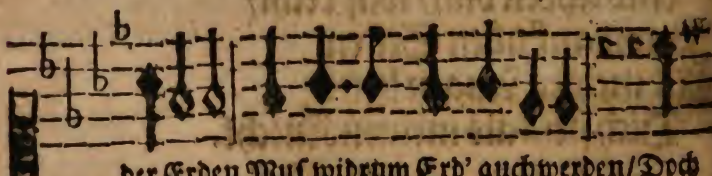 der Erden Muſ widrum Erd' auch werden/ Doch